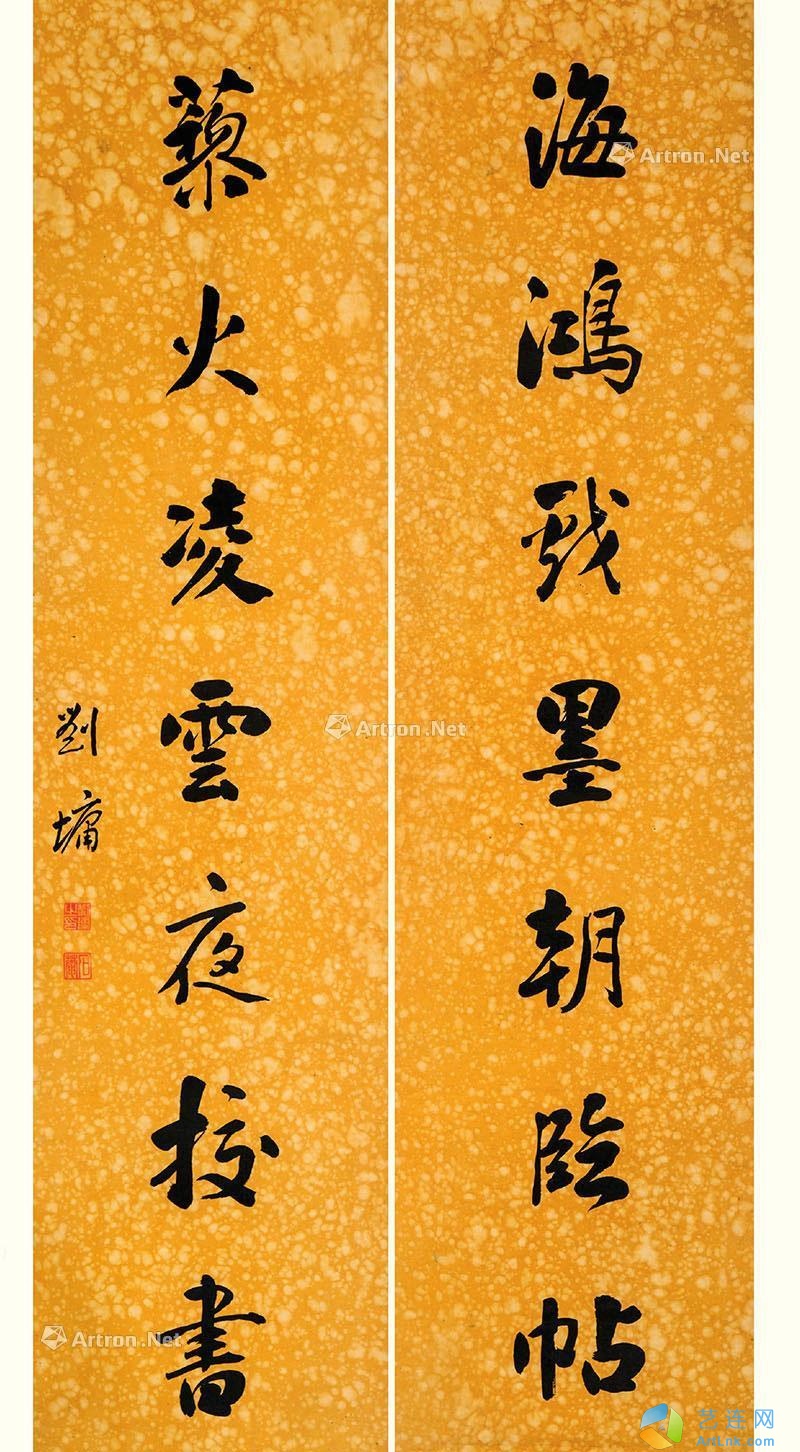 海鴻戏墨朝臨帖
藜火凌雲夜挍書
劉墉
Artron.Net
Artron.Net
Artron.Net
艺连网
ArtLnx.com